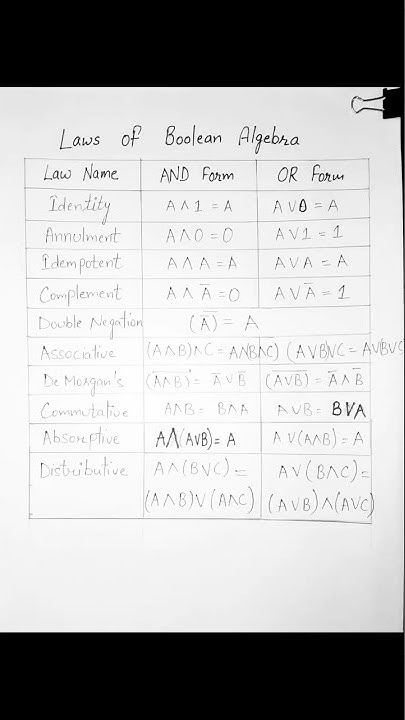 Laws of Boolean Algebra
Law Name AND Form OR Form
Identity A∧1 = A A∨0 = A
Annulment A∧0 = 0 A∨1 = 1
Idempotent A∧A = A A∨A = A
Complement A∧A̅ = 0 A∨A̅ = 1
Double Negation (A̿) = A
Associative (A∧B)∧C = A∧B∧C) (A∨B)∨C = A∨(B∨C
De Morgan's (A̅∧̅B̅) = A̅∨B̅ (A̅∨̅B̅) = A̅∧B̅
Commutative A∧B = B∧A A∨B = B∨A
Absorptive A∧(A∨B) = A A∨(A∧B) = A
Distributive A∧(B∨C) = A∨(B∧C) =
(A∧B)∨(A∧C) (A∨B)∧(A∨C)